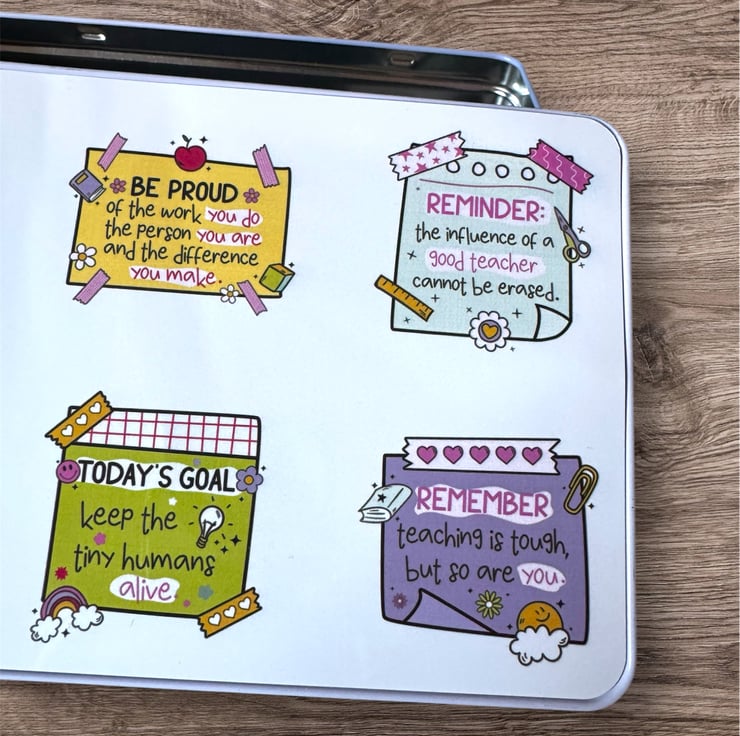 BE PROUD
of the work you do
the person you are
and the difference
you make.
REMINDER:
the influence of a
good teacher
cannot be erased.
TODAY'S GOAL
keep the
tiny humans
alive.
REMEMBER
teaching is tough,
but so are you.